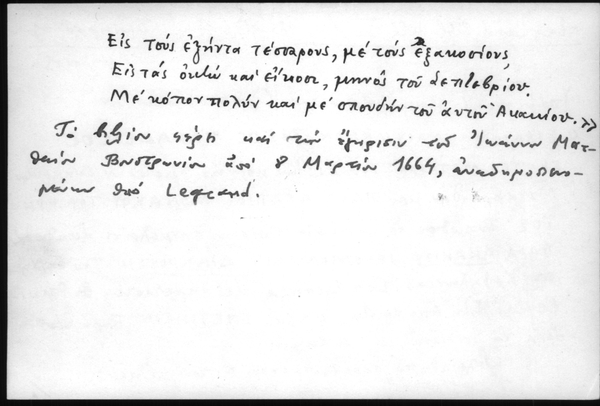 Εἰς τούς ἑξήντα τέσσαρους, μέ τούς ἑξακοσίους,
Εἰς τάς ὀκτώ καί εἴκοσι, μηνός τοῦ Σεπτεβρίου.
Μέ κόπον πολύν καί μέ σπουδήν τοῦ αὐτοῦ Ακακίου.»
Τό βιβλίον φέρει καί τήν ἔγκρισιν τοῦ Ἰωάννου Ματ-
θαίου Βουστρωνίου ἀπό 8 Μαρτίου 1664, ἀναδημοσιευο-
μένην ὑπό Legrand.